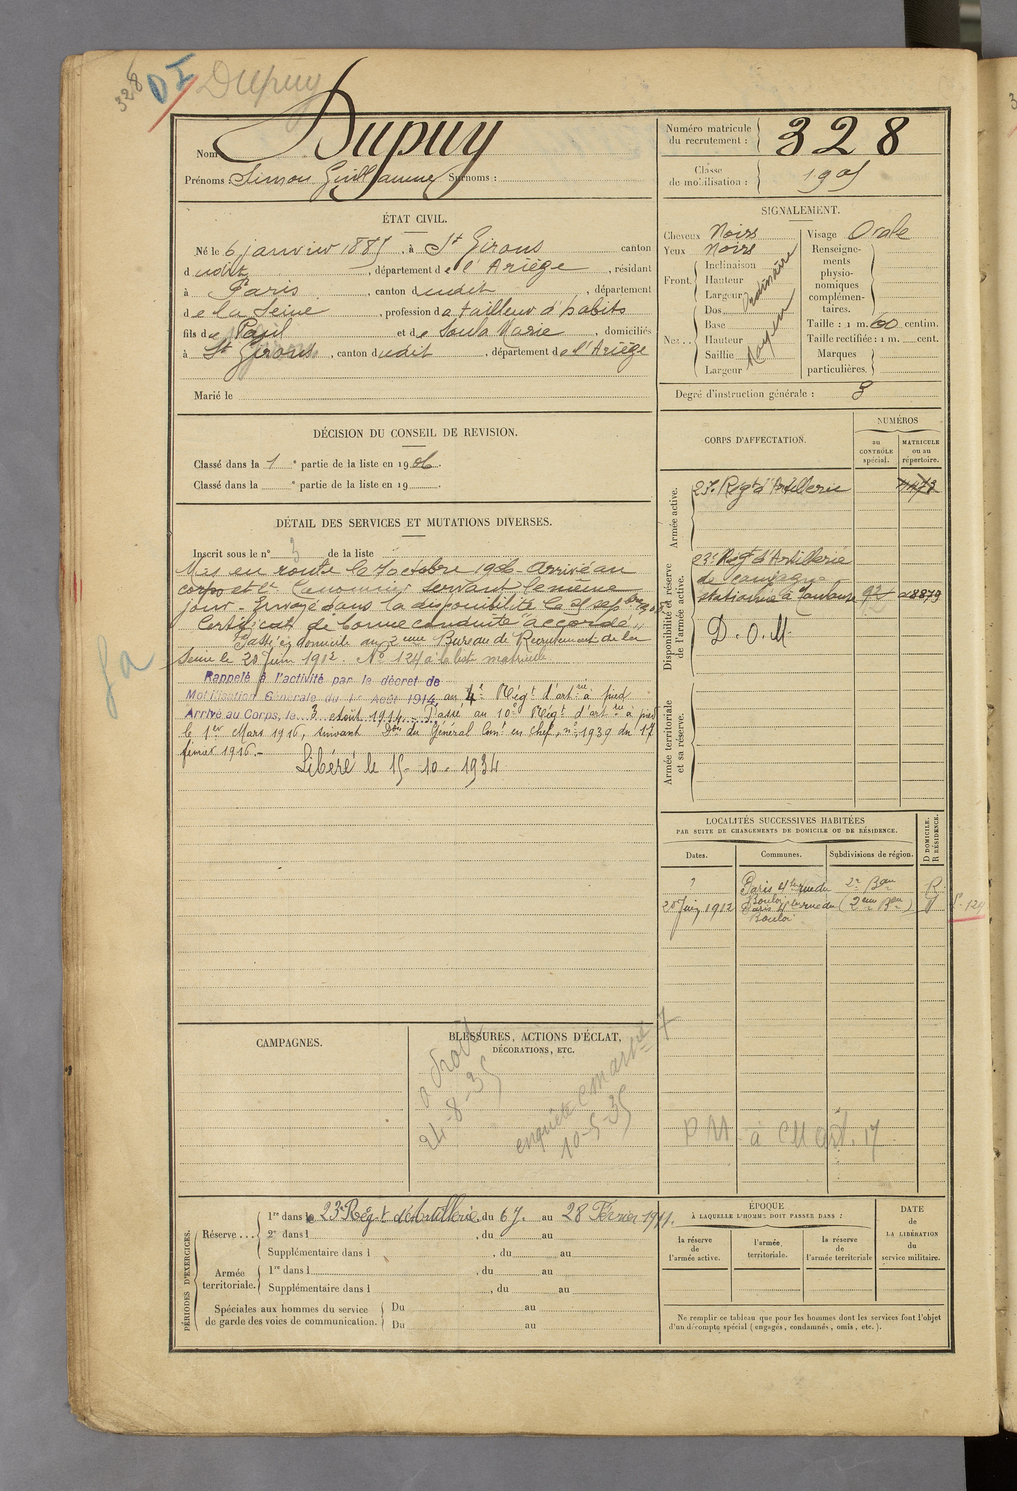 328
DI Dupuy
Nom Dupuy
Prénoms : Simon Guillaume Surnoms :
Numéro matricule du recrutement : 328
Classe de mobilisation : 1905
ÉTAT CIVIL.
Né le 6 janvier 1885, à St Girons canton
dudit, département de l'Ariège, résidant
à Paris, canton dudit, département
de la Seine, profession d tailleur d'habits
fils de Paul et de Soula Marie, domiciliés
à St Girons, canton dudit, département de l'Ariège
Marié le
SIGNALEMENT.
Cheveux Noirs
Yeux noirs
Front. Inclinaison
Hauteur
Largeur
Ordinaire
Nez.. Dos
Base
Hauteur
Saillie
Largeur
Moyen
Visage Ovale
Renseignements physionomiques complémentaires.
Taille : 1 m. 60 centim.
Taille rectifiée : 1 m. cent.
Marques particulières.
Degré d'instruction générale : 3
DÉCISION DU CONSEIL DE REVISION.
Classé dans la 1e partie de la liste en 1906.
Classé dans la e partie de la liste en 19
DÉTAIL DES SERVICES ET MUTATIONS DIVERSES.
Inscrit sous le n° 3 de la liste
Mis en route le 7 octobre 1906. Arrivé au
corps et 2e Canonnier servant le même
jour - Envoyé dans la disponibilité le 25 sepbre 1908
Certificat de bonne conduite "accordé"
Passé en domicile au 2eme Bureau de Recrutement de la
Seine le 20 Juin 1912. N° 124 à la list matricule
Rappelé à l'activité par le décret de
Mobilisation Générale du 1er Août 1914, au 4e Régt d'artrie à pied
Arrivé au Corps, le 3 août 1914. - Passé au 10e Régt d'artrie à pied
le 1er Mars 1916, suivant Don du Général Comt en Chef, n° 1939 du 17
février 1916.-
Libéré le 15-10-1934
CORPS D'AFFECTATION.
NUMÉROS
au CONTRÔLE spécial.
MATRICULE ou au répertoire.
Armée active.
23e Régt d'Artillerie
Disponibilité et réserve de l'armée active.
23e Régt d'Artillerie
de campagne
stationné à Toulouse
D.O.M.
Armée territoriale et sa réserve.
LOCALITÉS SUCCESSIVES HABITÉES
PAR SUITE DE CHANGEMENTS DE DOMICILE OU DE RÉSIDENCE.
Dates.
Communes.
Subdivisions de région.
D DOMICILE. R RÉSIDENCE.
? Paris 4 rue du Bouloi 2e Bau R
20 Juin 1912 Paris 4 rue du Bouloi (2eme Bau) D
CAMPAGNES.
BLESSURES, ACTIONS D'ÉCLAT, DÉCORATIONS, ETC.
24-8-35
10-5-35
PÉRIODES D'EXERCICES.
Réserve... 1re dans le 23e Régt d'Artillerie, du 6 f. au 28 Février 1911.
2e dans l , du au
Supplémentaire dans l , du au
Armée territoriale. 1re dans l , du au
Supplémentaire dans l , du au
Spéciales aux hommes du service de garde des voies de communication. Du au
Du au
ÉPOQUE
À LAQUELLE L'HOMME DOIT PASSER DANS :
la réserve de l'armée active.
l'armée territoriale.
la réserve de l'armée territoriale
DATE de LA LIBÉRATION du service militaire.
Ne remplir ce tableau que pour les hommes dont les services font l'objet
d'un décompte spécial (engagés, condamnés, omis, etc.).